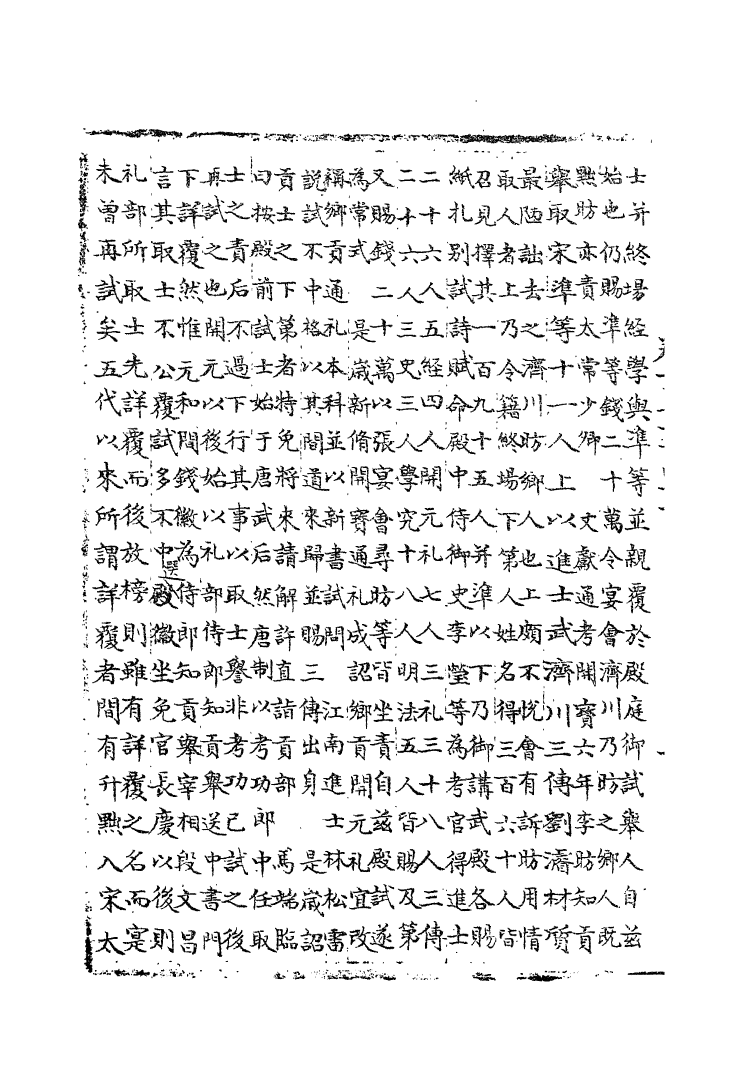 士并終場經學與準等並親覆於殿庭御試舉人自茲
始也仍賜準等錢二十萬令宴會濟川乃昉之鄉人既
黜昉亦責太常少卿 文獻通考開寶六年李昉知貢
舉取宋準等十一人上 以進士武濟川三傳劉濬材質
最陋詘去之濟川昉鄉人也上頗不悅會有訴昉用情
取人者上乃令籍終場下第人姓名得三百六十人皆
召見擇其一百九十五人并準以下乃御講武殿各賜
紙札別試詩賦命殿中侍御史李瑩等為考官得進士
二十六人五經四人開元礼七人三礼三十八人三傳
二十六人三史三人學究十八人明法五人皆賜及第
又賜錢二十萬以張宴會尋昉等皆坐責自茲殿試遂
為常式 是歲新脩開寶通礼成 詔鄉貢開元礼宜改
稱鄉貢通礼本科並以新書試問 江南進士林松雷
說試不中格以其間道來歸並賜三傳出身 是歲詔
貢士之下第者特免將來請解許直詣貢部 馬端臨
曰按殿前試士始于唐武后然唐制以考功郎中任取
士之責后不過下行其事以取士譽非考功已試之後
再試之也開元以後始以礼部侍郎知貢舉送中書門
下詳覆然惟元和間錢徽為侍郎知貢舉宰相段文昌
言其取士不公覆試多不中選殿徽坐免官長慶以後則
礼部所取士先詳覆而後放榜則雖有詳覆之名而寔
未曾再試矣五代以來所謂詳覆者間有升黜入宋太